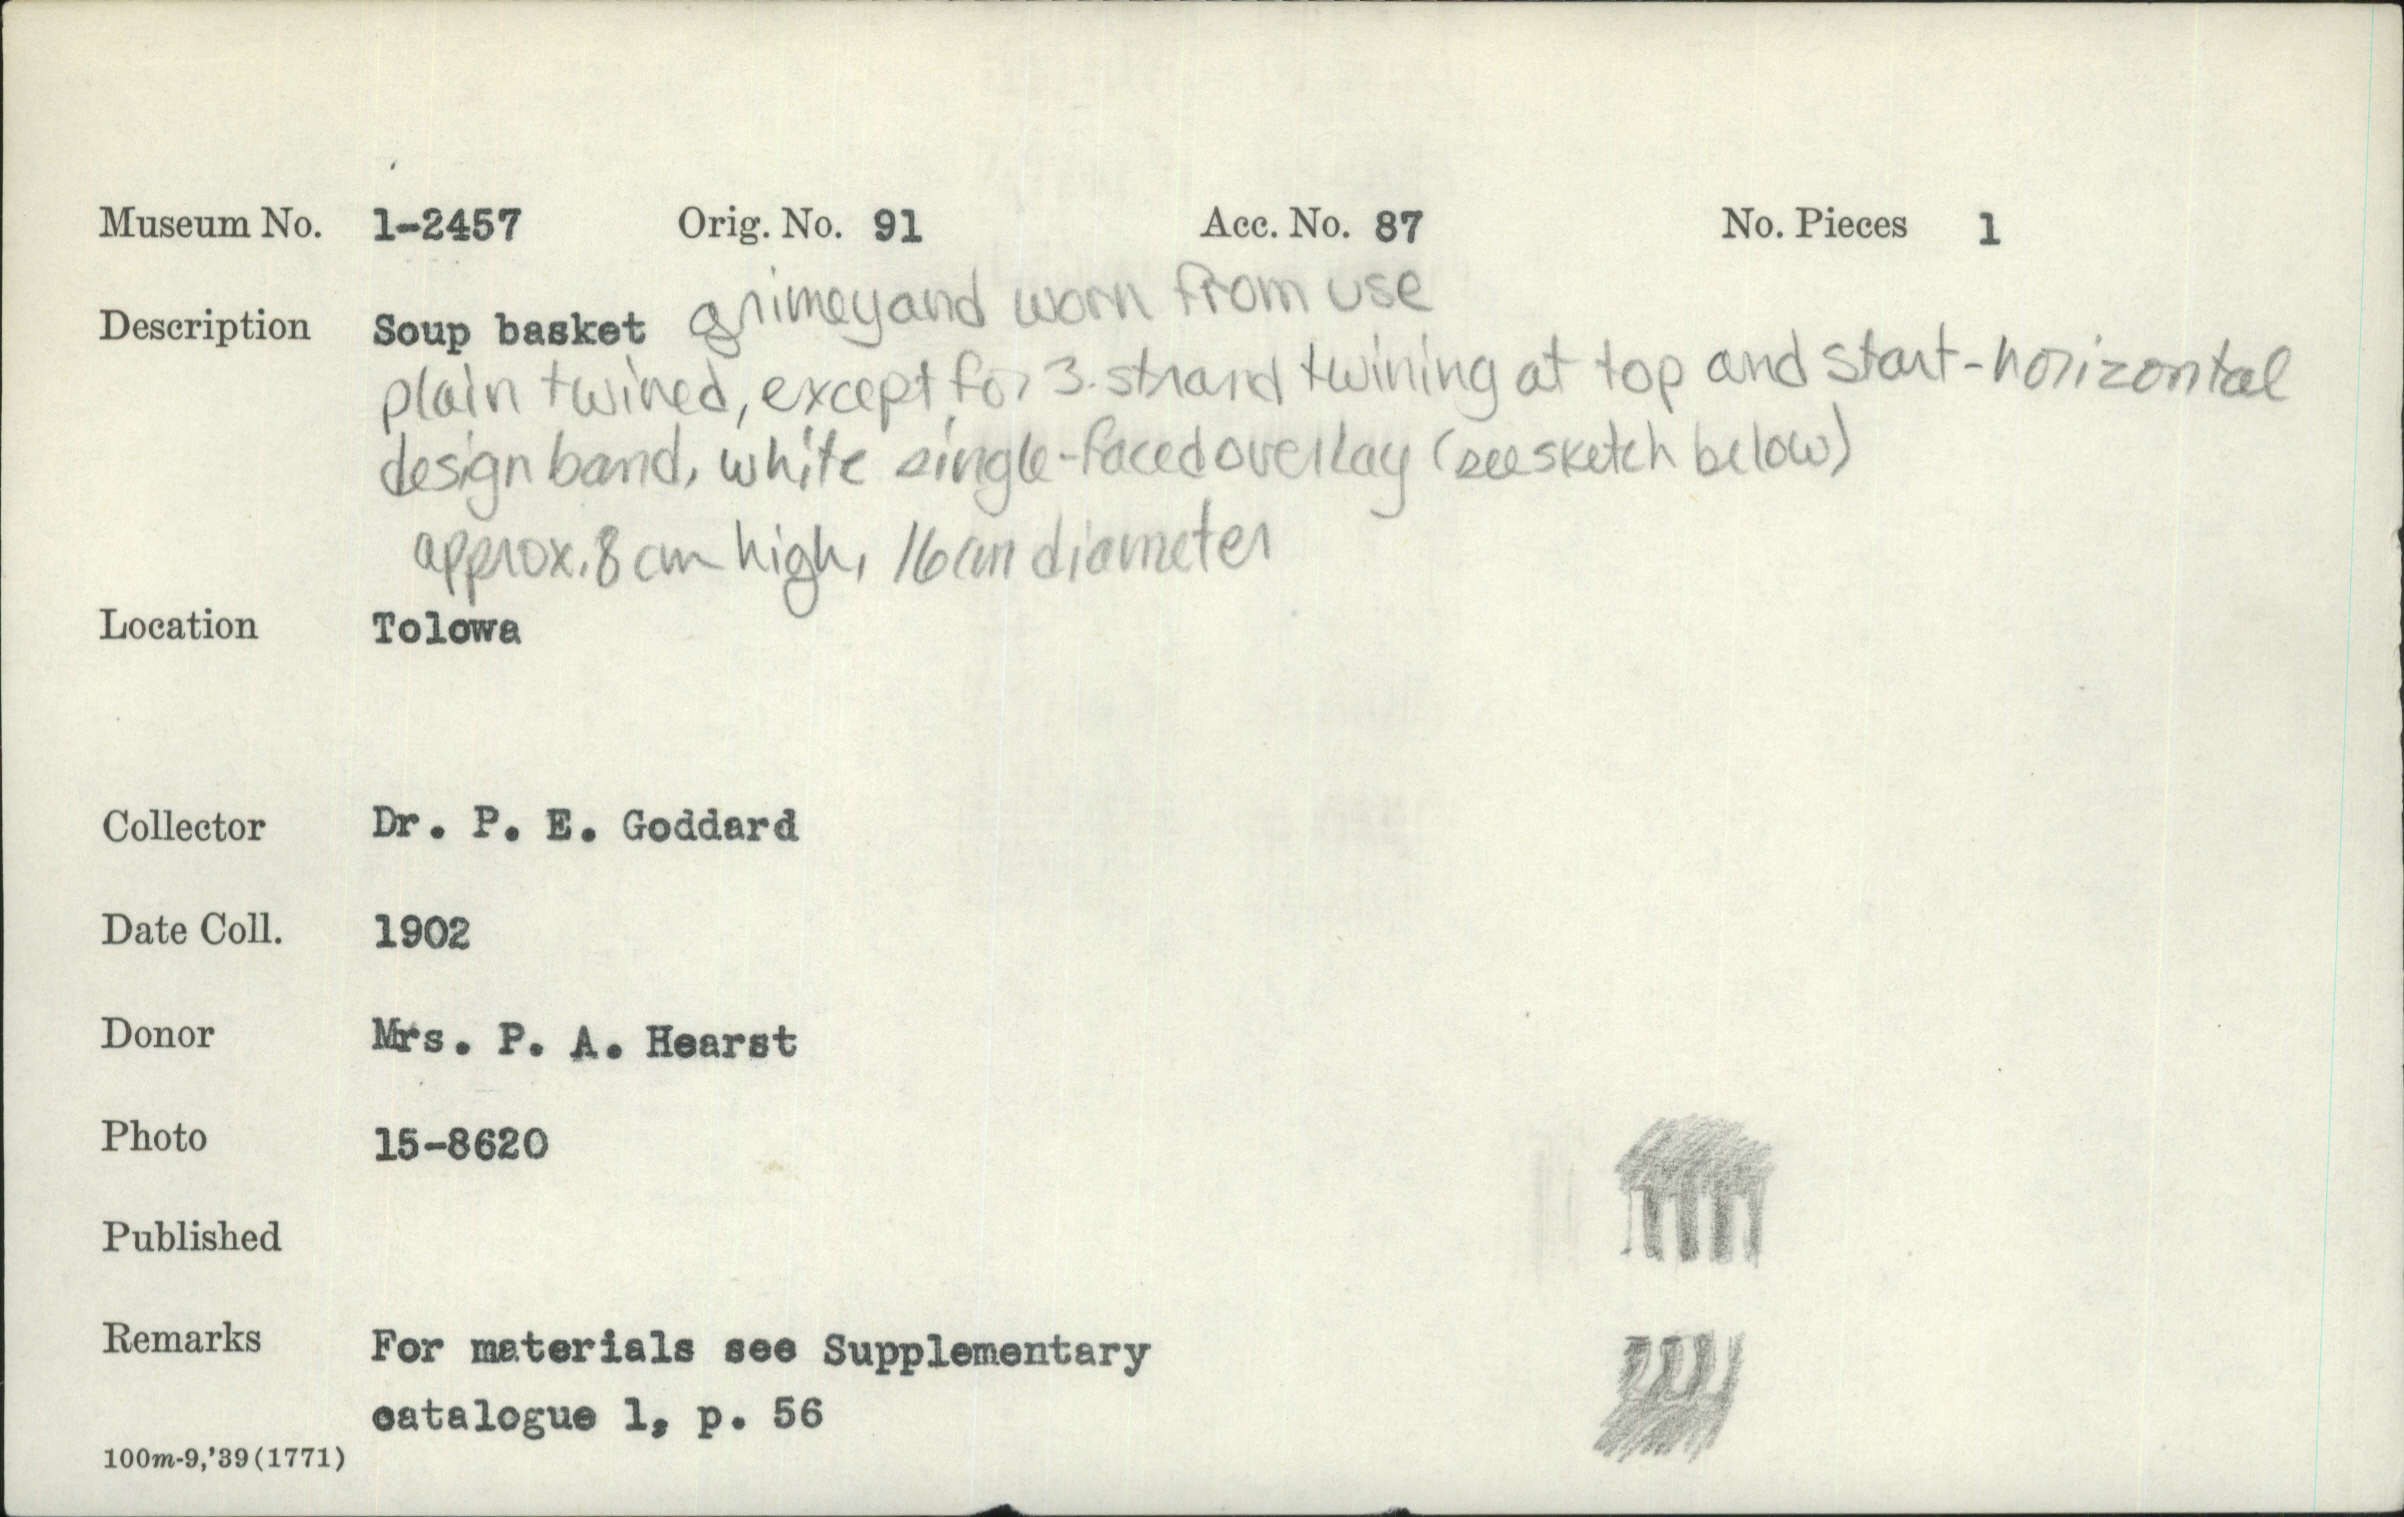 Museum No. 1-2457 Orig. No. 91 Acc. No. 87 No. Pieces 1
Description Soup basket grimey and worn from use
plain twined, except for 3-strand twining at top and start - horizontal
design band, white single-faced overlay (see sketch below)
approx. 8 cm high, 16 cm diameter
Location Tolowa
Collector Dr. P. E. Goddard
Date Coll. 1902
Donor Mrs. P. A. Hearst
Photo 15-8620
Published
Remarks For materials see Supplementary
catalogue 1, p. 56
100m-9,'39(1771)